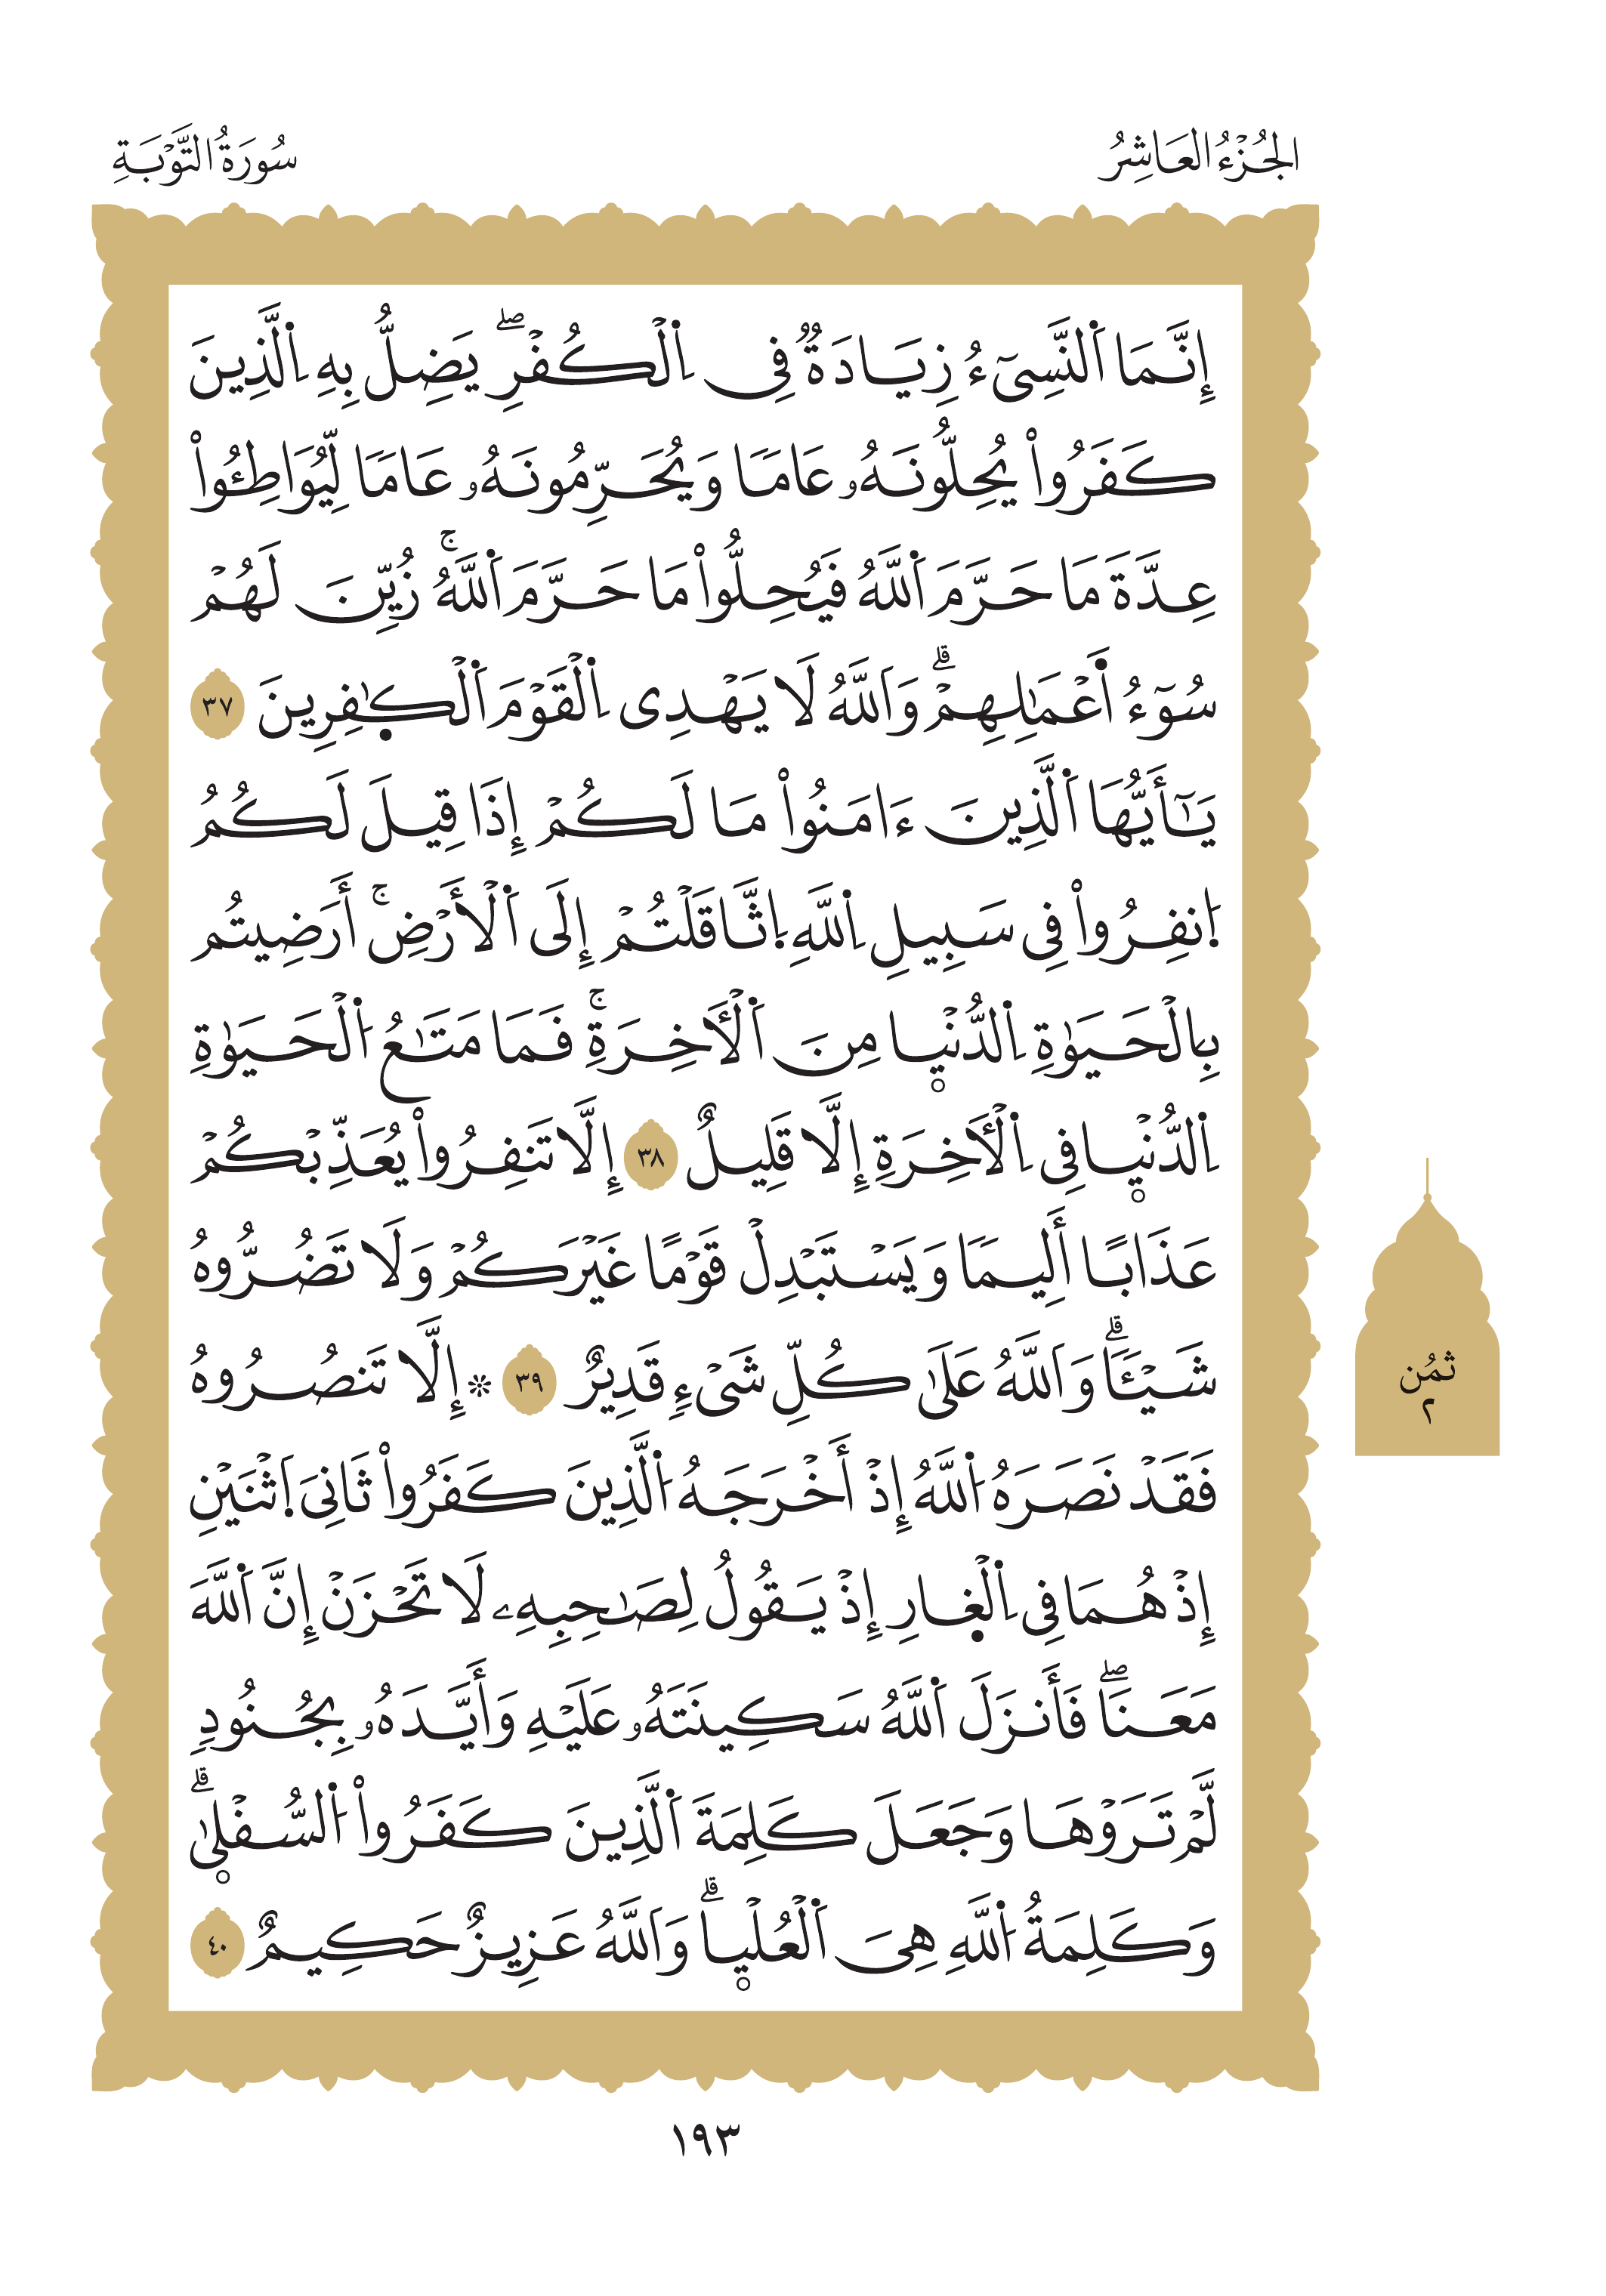 الجُزْءُ العَاشِرُ
سُورَةُ التَّوْبَةِ
إِنَّمَا اَ۬لنَّسِيٓءُ زِيَادَةٞ فِي اِ۬لْكُفْرِۖ يَضِلُّ بِهِ اِ۬لَّذِينَ
كَفَرُواْ يُحِلُّونَهُۥ عَامٗا وَيُحَرِّمُونَهُۥ عَامٗا لِّيُوَاطِـُٔواْ
عِدَّةَ مَا حَرَّمَ اَ۬للَّهُ فَيُحِلُّواْ مَا حَرَّمَ اَ۬للَّهُۚ زُيِّنَ لَهُمْ
سُوٓءُ اَ۬عْمَٰلِهِمْۗ وَاَللَّهُ لَا يَهْدِي اِ۬لْقَوْمَ اَ۬لْكٰ۪فِرِينَ ٣٧
يَٰٓأَيُّهَا اَ۬لَّذِينَ ءَامَنُواْ مَا لَكُمْ إِذَا قِيلَ لَكُمُ
اُ۪نفِرُواْ فِي سَبِيلِ اِ۬للَّهِ اِ۪ثَّاقَلْتُمْ إِلَى اَ۬لْأَرْضِۚ أَرَضِيتُم
بِالْحَيَوٰةِ اِ۬لدُّنْي۪ا مِنَ اَ۬لْأٓخِرَةِۚ فَمَا مَتَٰعُ اُ۬لْحَيَوٰةِ
اِ۬لدُّنْي۪ا فِي اِ۬لْأٓخِرَةِ إِلَّا قَلِيلٌ ٣٨ إِلَّا تَنفِرُواْ يُعَذِّبْكُمْ
عَذَابًا أَلِيمٗا وَيَسْتَبْدِلْ قَوْمًا غَيْرَكُمْ وَلَا تَضُرُّوهُ
شَيْـٔٗاۗ وَاَللَّهُ عَلَىٰ كُلِّ شَيْءٖ قَدِيرٌ ٣٩ ۞ إِلَّا تَنصُرُوهُ
فَقَدْ نَصَرَهُ اُ۬للَّهُ إِذْ أَخْرَجَهُ اُ۬لَّذِينَ كَفَرُواْ ثَانِيَ اَ۪ثْنَيْنِ
إِذْ هُمَا فِي اِ۬لْغ۪ارِ إِذْ يَقُولُ لِصَٰحِبِهِۦ لَا تَحْزَنْ إِنَّ اَ۬للَّهَ
مَعَنَاۖ فَأَنزَلَ اَ۬للَّهُ سَكِينَتَهُۥ عَلَيْهِ وَأَيَّدَهُۥ بِجُنُودٖ
لَّمْ تَرَوْهَا وَجَعَلَ كَلِمَةَ اَ۬لَّذِينَ كَفَرُواْ اُ۬لسُّفْل۪ىٰۗ
وَكَلِمَةُ اُ۬للَّهِ هِيَ اَ۬لْعُلْي۪اۗ وَاَللَّهُ عَزِيزٌ حَكِيمٌ ٤٠
ثُمُن
٢
١٩٣